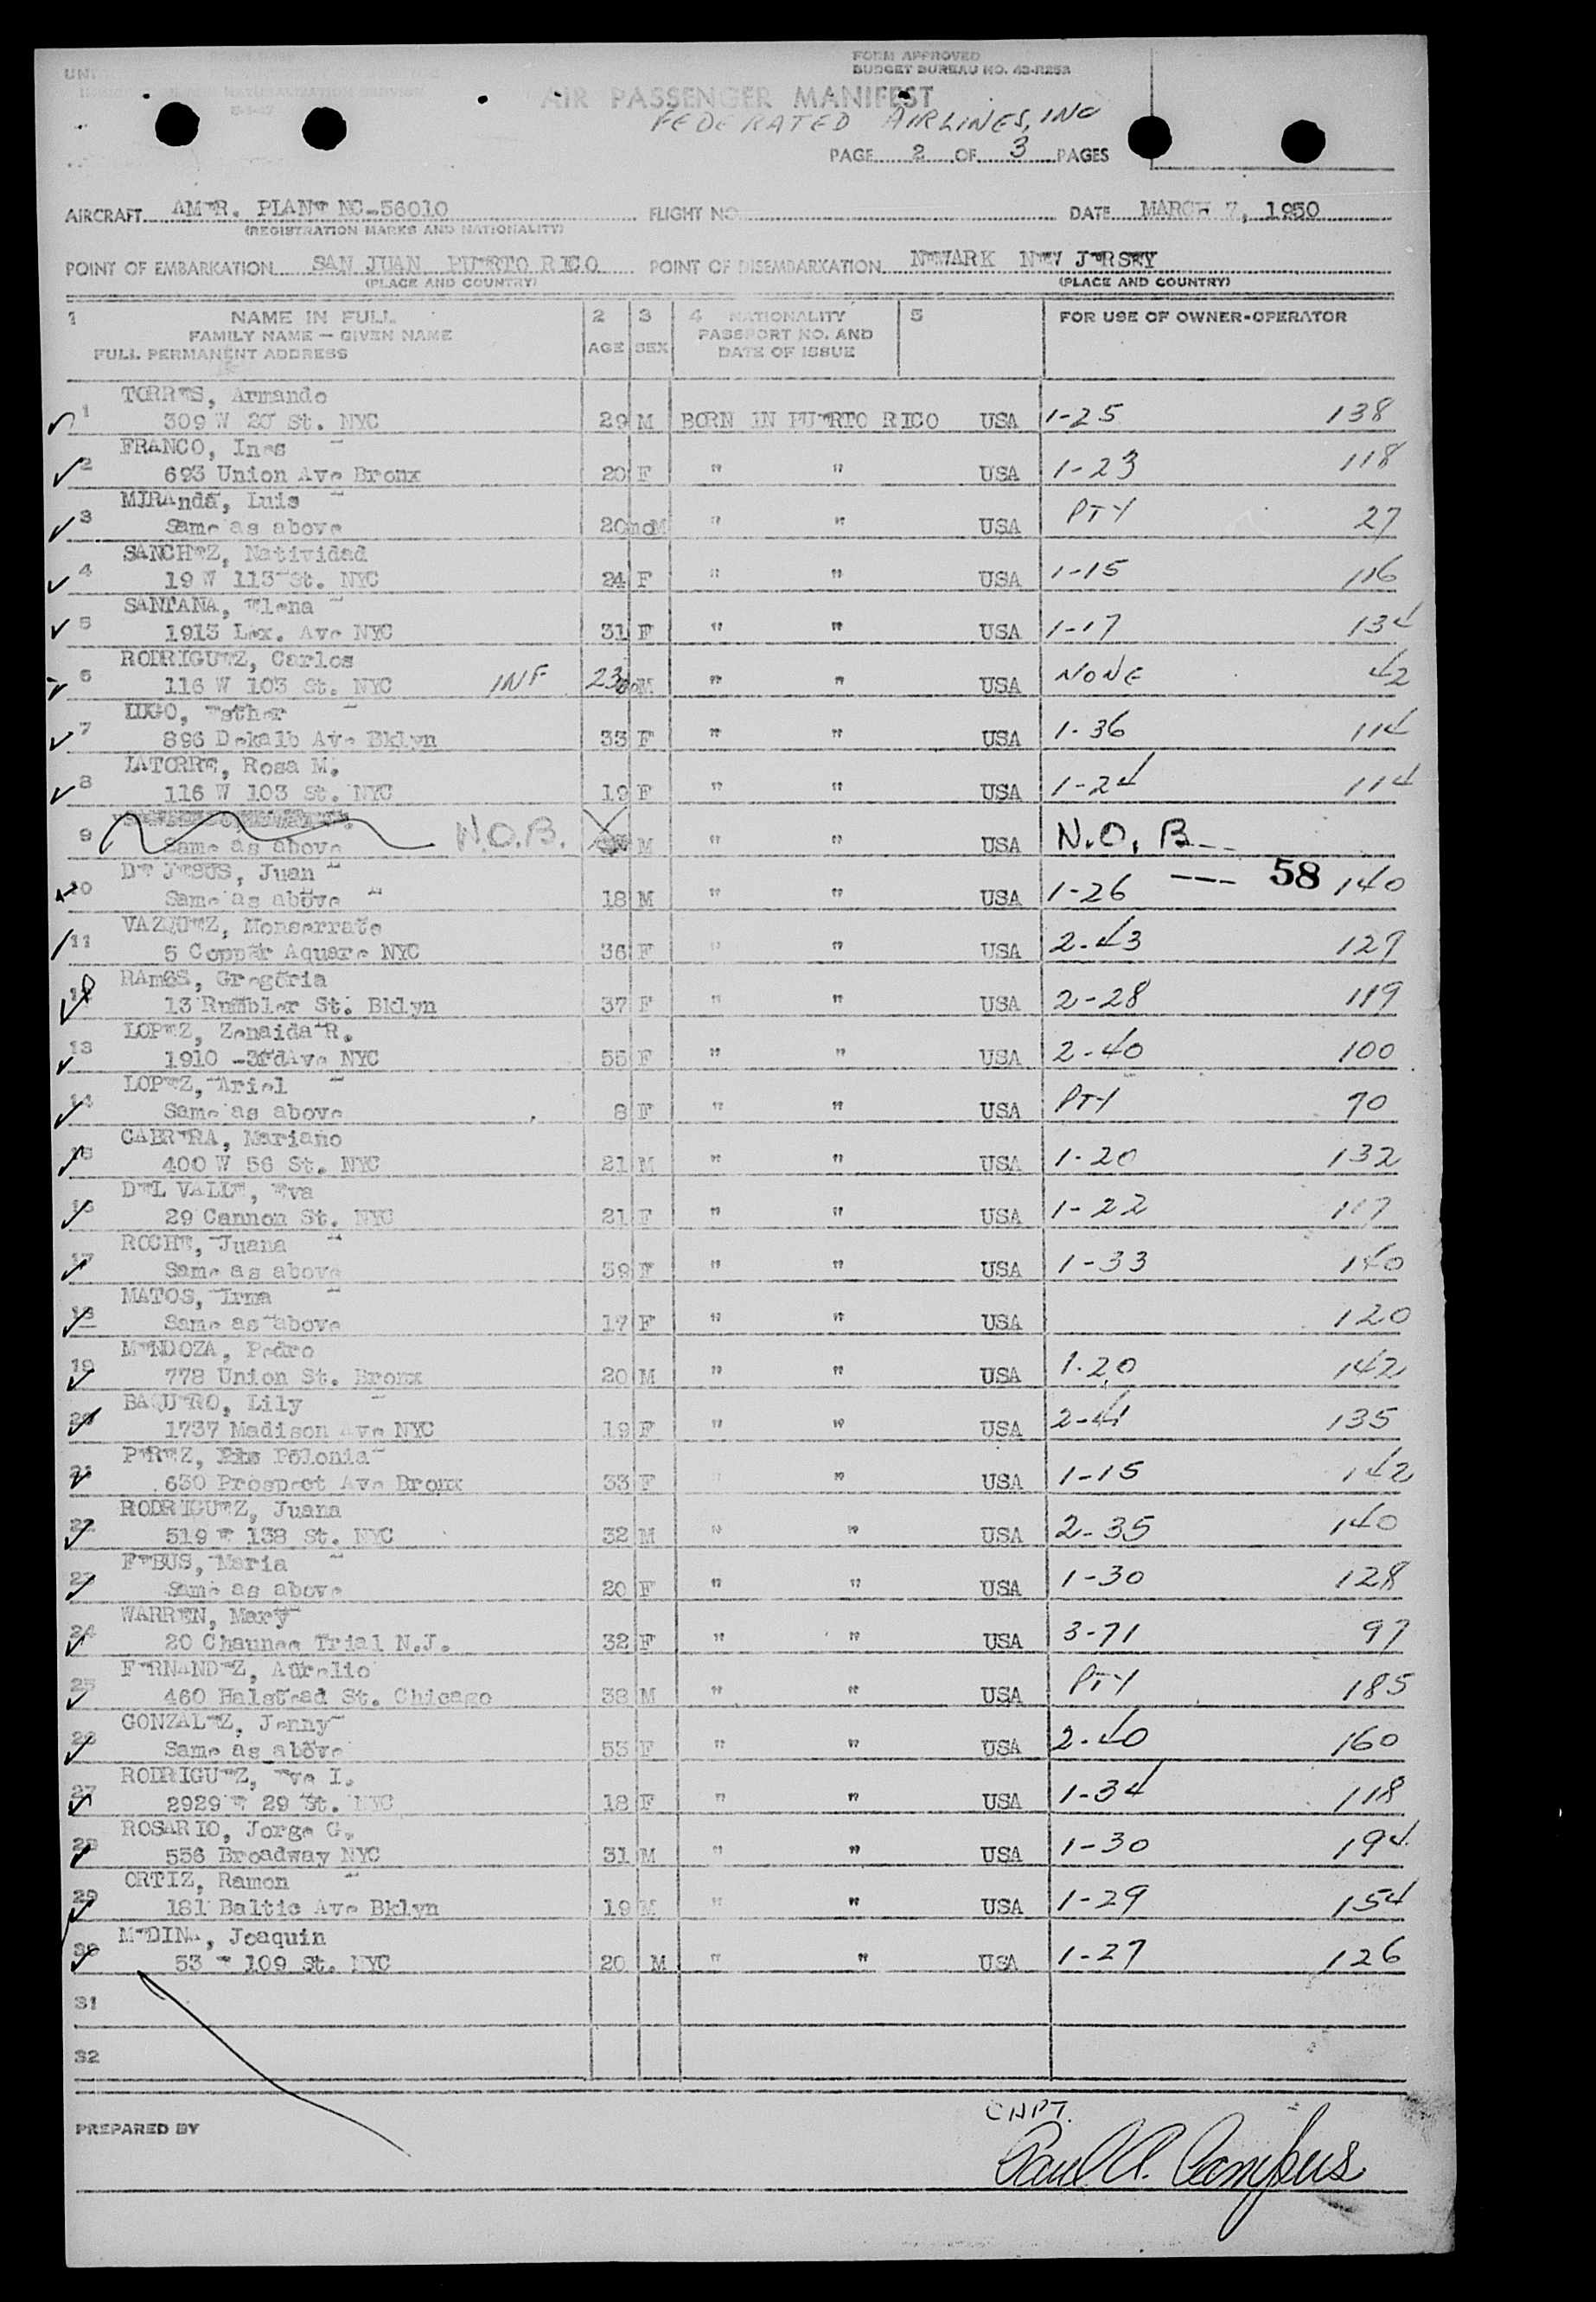 FORM APPROVED
BUDGET BUREAU NO. 43-R252
AIR PASSENGER MANIFEST
FEDERATED AIRLINES, INC
PAGE 2 OF 3 PAGES
AIRCRAFT AMER. PLANE NC-56010 FLIGHT NO DATE MARCH 7, 1950
(REGISTRATION MARKS AND NATIONALITY)
POINT OF EMBARKATION SAN JUAN PUERTO RICO POINT OF DISEMBARKATION NEWARK NEW JERSEY
(PLACE AND COUNTRY) (PLACE AND COUNTRY)
1 NAME IN FULL 2 3 4 NATIONALITY 5 FOR USE OF OWNER-OPERATOR
FAMILY NAME — GIVEN NAME PASSPORT NO. AND
FULL PERMANENT ADDRESS AGE SEX DATE OF ISSUE
TORRES, Armando
1 309 W 20 St. NYC 29 M BORN IN PUERTO RICO USA 1-25 138
FRANCO, Ines
2 693 Union Ave Bronx 20 F " " USA 1-23 118
MIRAnda, Luis
3 Same as above 20mo M " " USA PTY 27
SANCHEZ, Natividad
4 19 W 113 St. NYC 24 F " " USA 1-15 116
SANTANA, Elena
5 1913 Lex. Ave NYC 31 F " " USA 1-17 134
RODRIGUEZ, Carlos
6 116 W 103 St. NYC INF 23 M " " USA NONE 42
LUGO, Esther
7 896 Dekalb Ave Bklyn 33 F " " USA 1-36 114
LATORRE, Rosa M.
8 116 W 103 St. NYC 19 F " " USA 1-24 114
9 Same as above N.O.B. M " " USA N.O.B
DE JESUS, Juan 58
10 Same as above " 18 M " " USA 1-26 140
VAZQUEZ, Monserrate
11 5 Copper Aquare NYC 36 F " " USA 2-43 129
RAmOS, Gregoria
12 13 Rumbler St. Bklyn 37 F " " USA 2-28 119
LOPEZ, Zenaida R.
13 1910 -3rdAve NYC 55 F " " USA 2-40 100
LOPEZ, Ariel
14 Same as above 8 F " " USA PTY 70
CABRERA, Mariano
15 400 W 56 St. NYC 21 M " " USA 1-20 132
DEL VALLE, Eva
16 29 Cannon St. NYC 21 F " " USA 1-22 117
ROCHE, Juana
17 Same as above 59 F " " USA 1-33 140
MATOS, Irma
18 Same as above 17 F " " USA 120
MENDOZA, Pedro
19 778 Union St. Bronx 20 M " " USA 1-20 142
BAQUERO, Lily
20 1737 Madison Ave NYC 19 F " " USA 2-41 135
PEREZ, Polonia
21 630 Prospect Ave Bronx 33 F " " USA 1-15 142
RODRIGUEZ, Juana
22 519 W 138 St. NYC 32 M " " USA 2-35 140
FEBUS, Maria
23 Same as above 20 F " " USA 1-30 128
WARREN, Mary
24 20 Chaunee Trial N.J. 32 F " " USA 3-71 97
FERNANDEZ, Aurelio
25 460 Halstead St. Chicago 38 M " " USA PTY 185
GONZALEZ, Jenny
26 Same as above 53 F " " USA 2-40 160
RODRIGUEZ, Eva I.
27 2929 E 29 St. NYC 18 F " " USA 1-34 118
ROSARIO, Jorge G.
28 556 Broadway NYC 31 M " " USA 1-30 194
ORTIZ, Ramon
29 181 Baltic Ave Bklyn 19 M " " USA 1-29 154
MEDINA, Joaquin
30 53 E 109 St. NYC 20 M " " USA 1-27 126
31
32
CAPT.
PREPARED BY Paul A. Campus